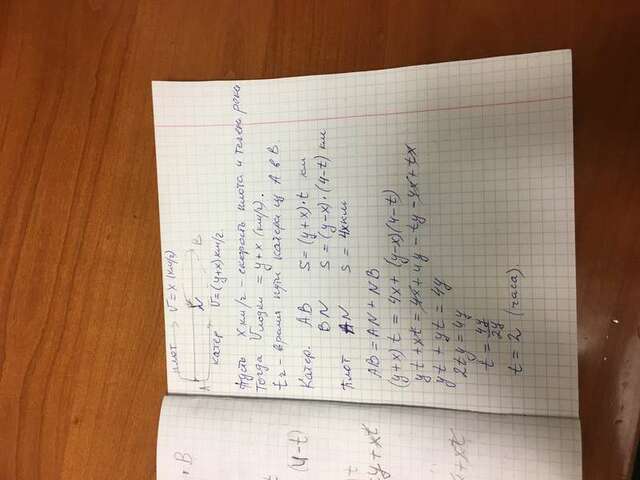 плот → V = x (км/г)
A N B
катер V = (y+x) км/г
Пусть x км/г - скорость плота и течен реки
Тогда Vлодки = y + x (км/г).
t г - время пути катера из A в B.
Катер. AB S = (y+x)·t км
BN S = (y-x)·(4-t) км
Плот AN S = 4x км
AB = AN + NB
(y+x)t = 4x + (y-x)(4-t)
yt + xt = 4x + 4y - ty - 4x + tx
yt + yt = 4y
2ty = 4y
t = 4y/2y
t = 2 (часа).
B
(4-t)
y + xt
+ xt